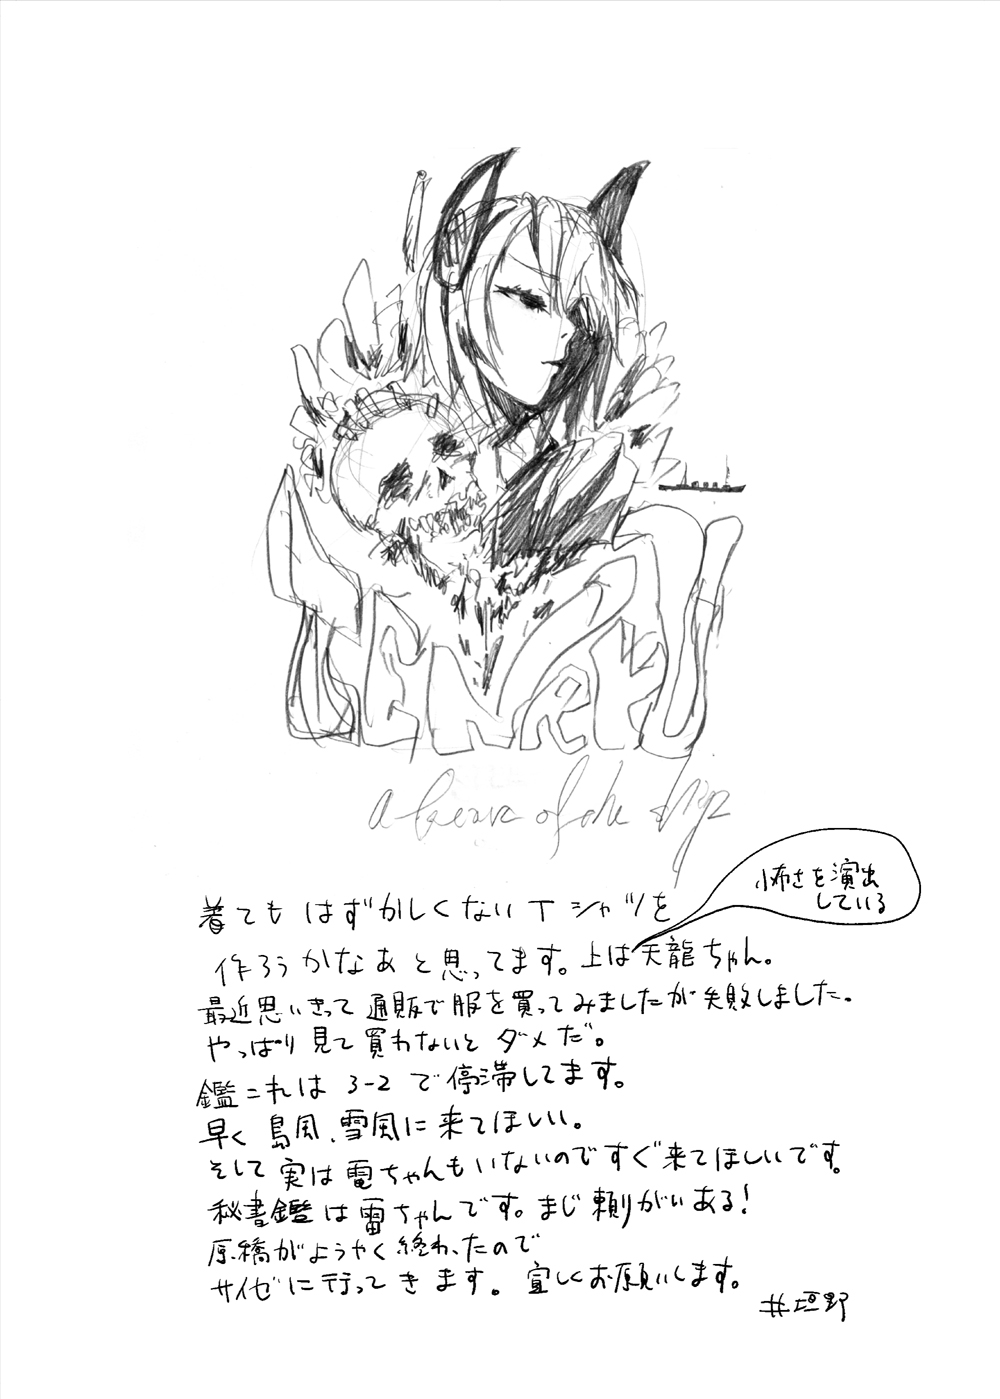 TENRYU
a bears of the ship
怖さを演出
している
着てもはずかしくないTシャツを
作ろうかなぁと思ってます。上は天龍ちゃん。
最近思いきって通販で服を買ってみましたが失敗しました。
やっぱり見て買わないとダメだ。
鑑これは3-2で停滞してます。
早く島風、雪風に来てほしい。
そして実は電ちゃんもいないのですぐ来てほしいです。
秘書鑑は雷ちゃんです。まじ頼りがいある!
原稿がようやく終わったので
サイゼに行ってきます。宜しくお願いします。
井垣野